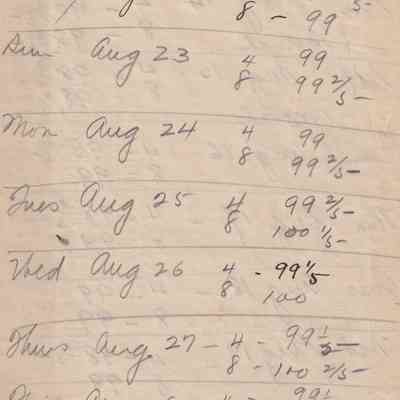 8 - 99
Sun Aug 23 4 99
8 99 2/5 -
Mon Aug 24 4 99
8 99 2/5 -
Tues Aug 25 4 99 2/5 -
8 100 1/5 -
Wed Aug 26 4 - 99 1/5
8 100
Thurs Aug. 27 - 4 - 99 1/2 -
8 - 100 2/5 -